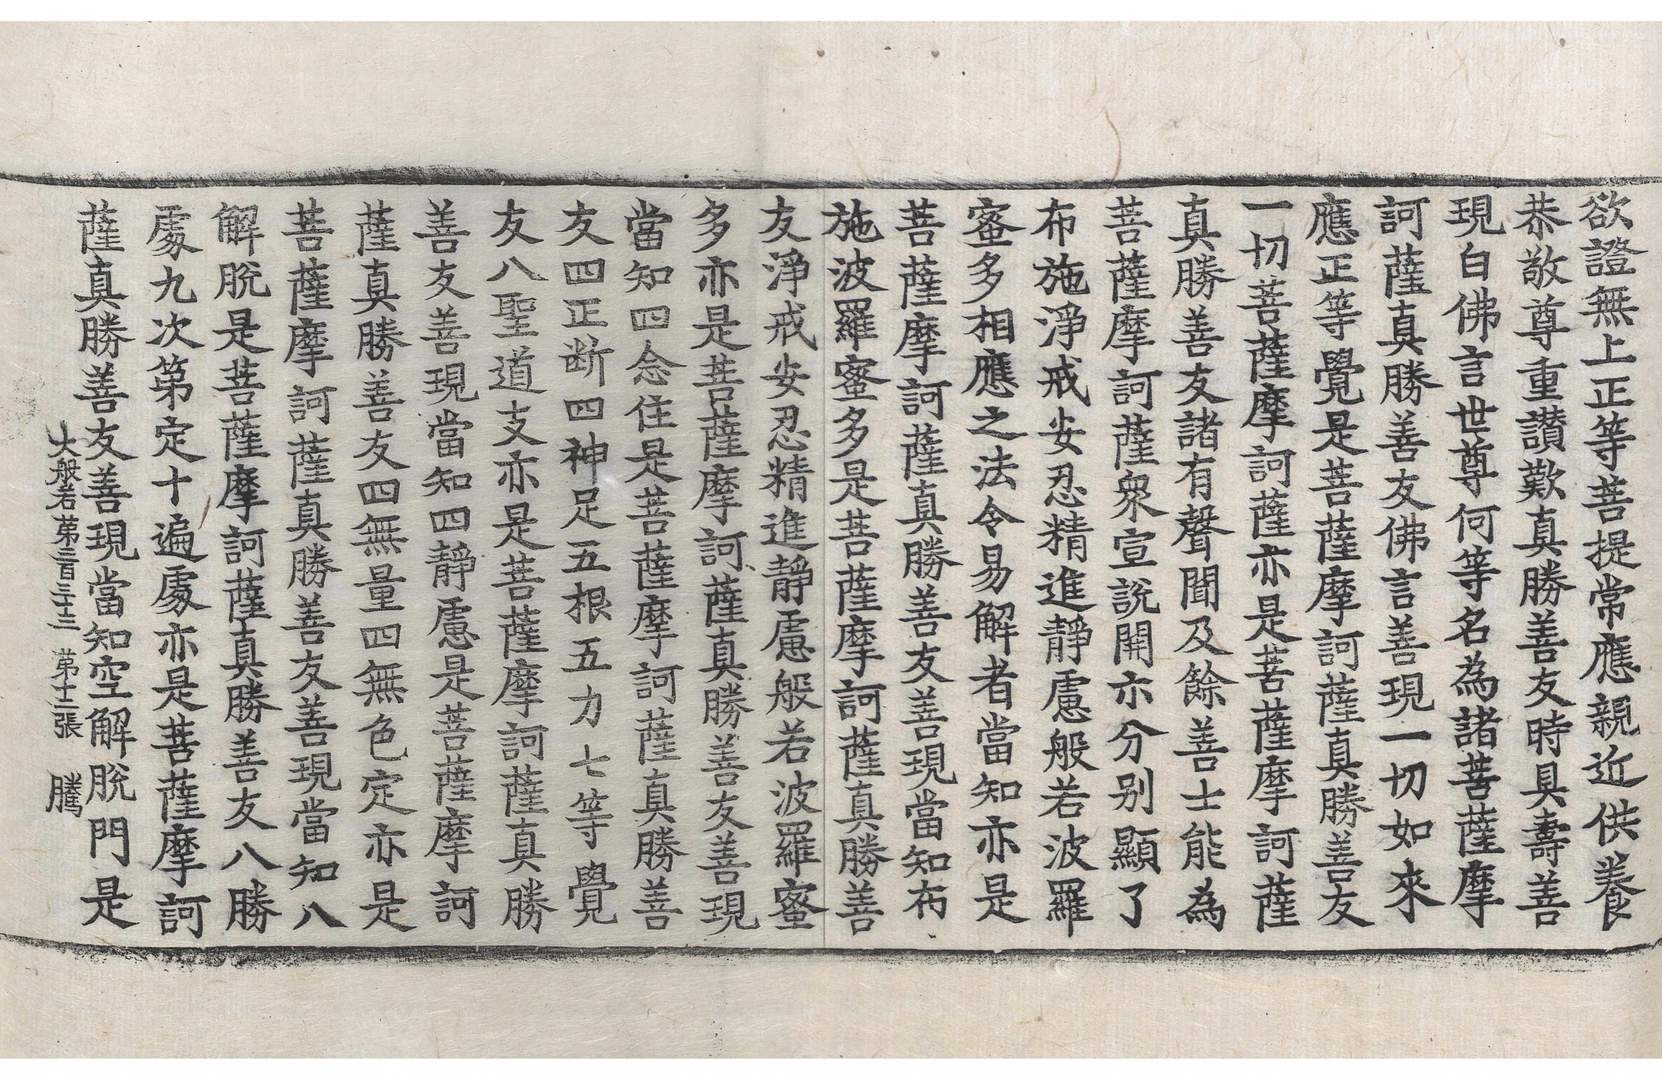 欲證無上正等菩提常應親近供養
恭敬尊重讃歎真勝善友時具壽善
現白佛言世尊何等名為諸菩薩摩
訶薩真勝善友佛言善現一切如來
應正等覺是菩薩摩訶薩真勝善友
一切菩薩摩訶薩亦是菩薩摩訶薩
真勝善友諸有聲聞及餘善士能為
菩薩摩訶薩衆宣說開示分别顯了
布施淨戒安忍精進靜慮般若波羅
蜜多相應之法令易解者當知亦是
菩薩摩訶薩真勝善友善現當知布
施波羅蜜多是菩薩摩訶薩真勝善
友淨戒安忍精進靜慮般若波羅蜜
多亦是菩薩摩訶薩真勝善友善現
當知四念住是菩薩摩訶薩真勝善
友四正断四神足五根五力七等覺
友八聖道支亦是菩薩摩訶薩真勝
善友善現當知四靜慮是菩薩摩訶
薩真勝善友四無量四無色定亦是
菩薩摩訶薩真勝善友善現當知八
解脫是菩薩摩訶薩真勝善友八勝
處九次第定十遍處亦是菩薩摩訶
薩真勝善友善現當知空解脫門是
大般若第三百三十三 第十二張 騰